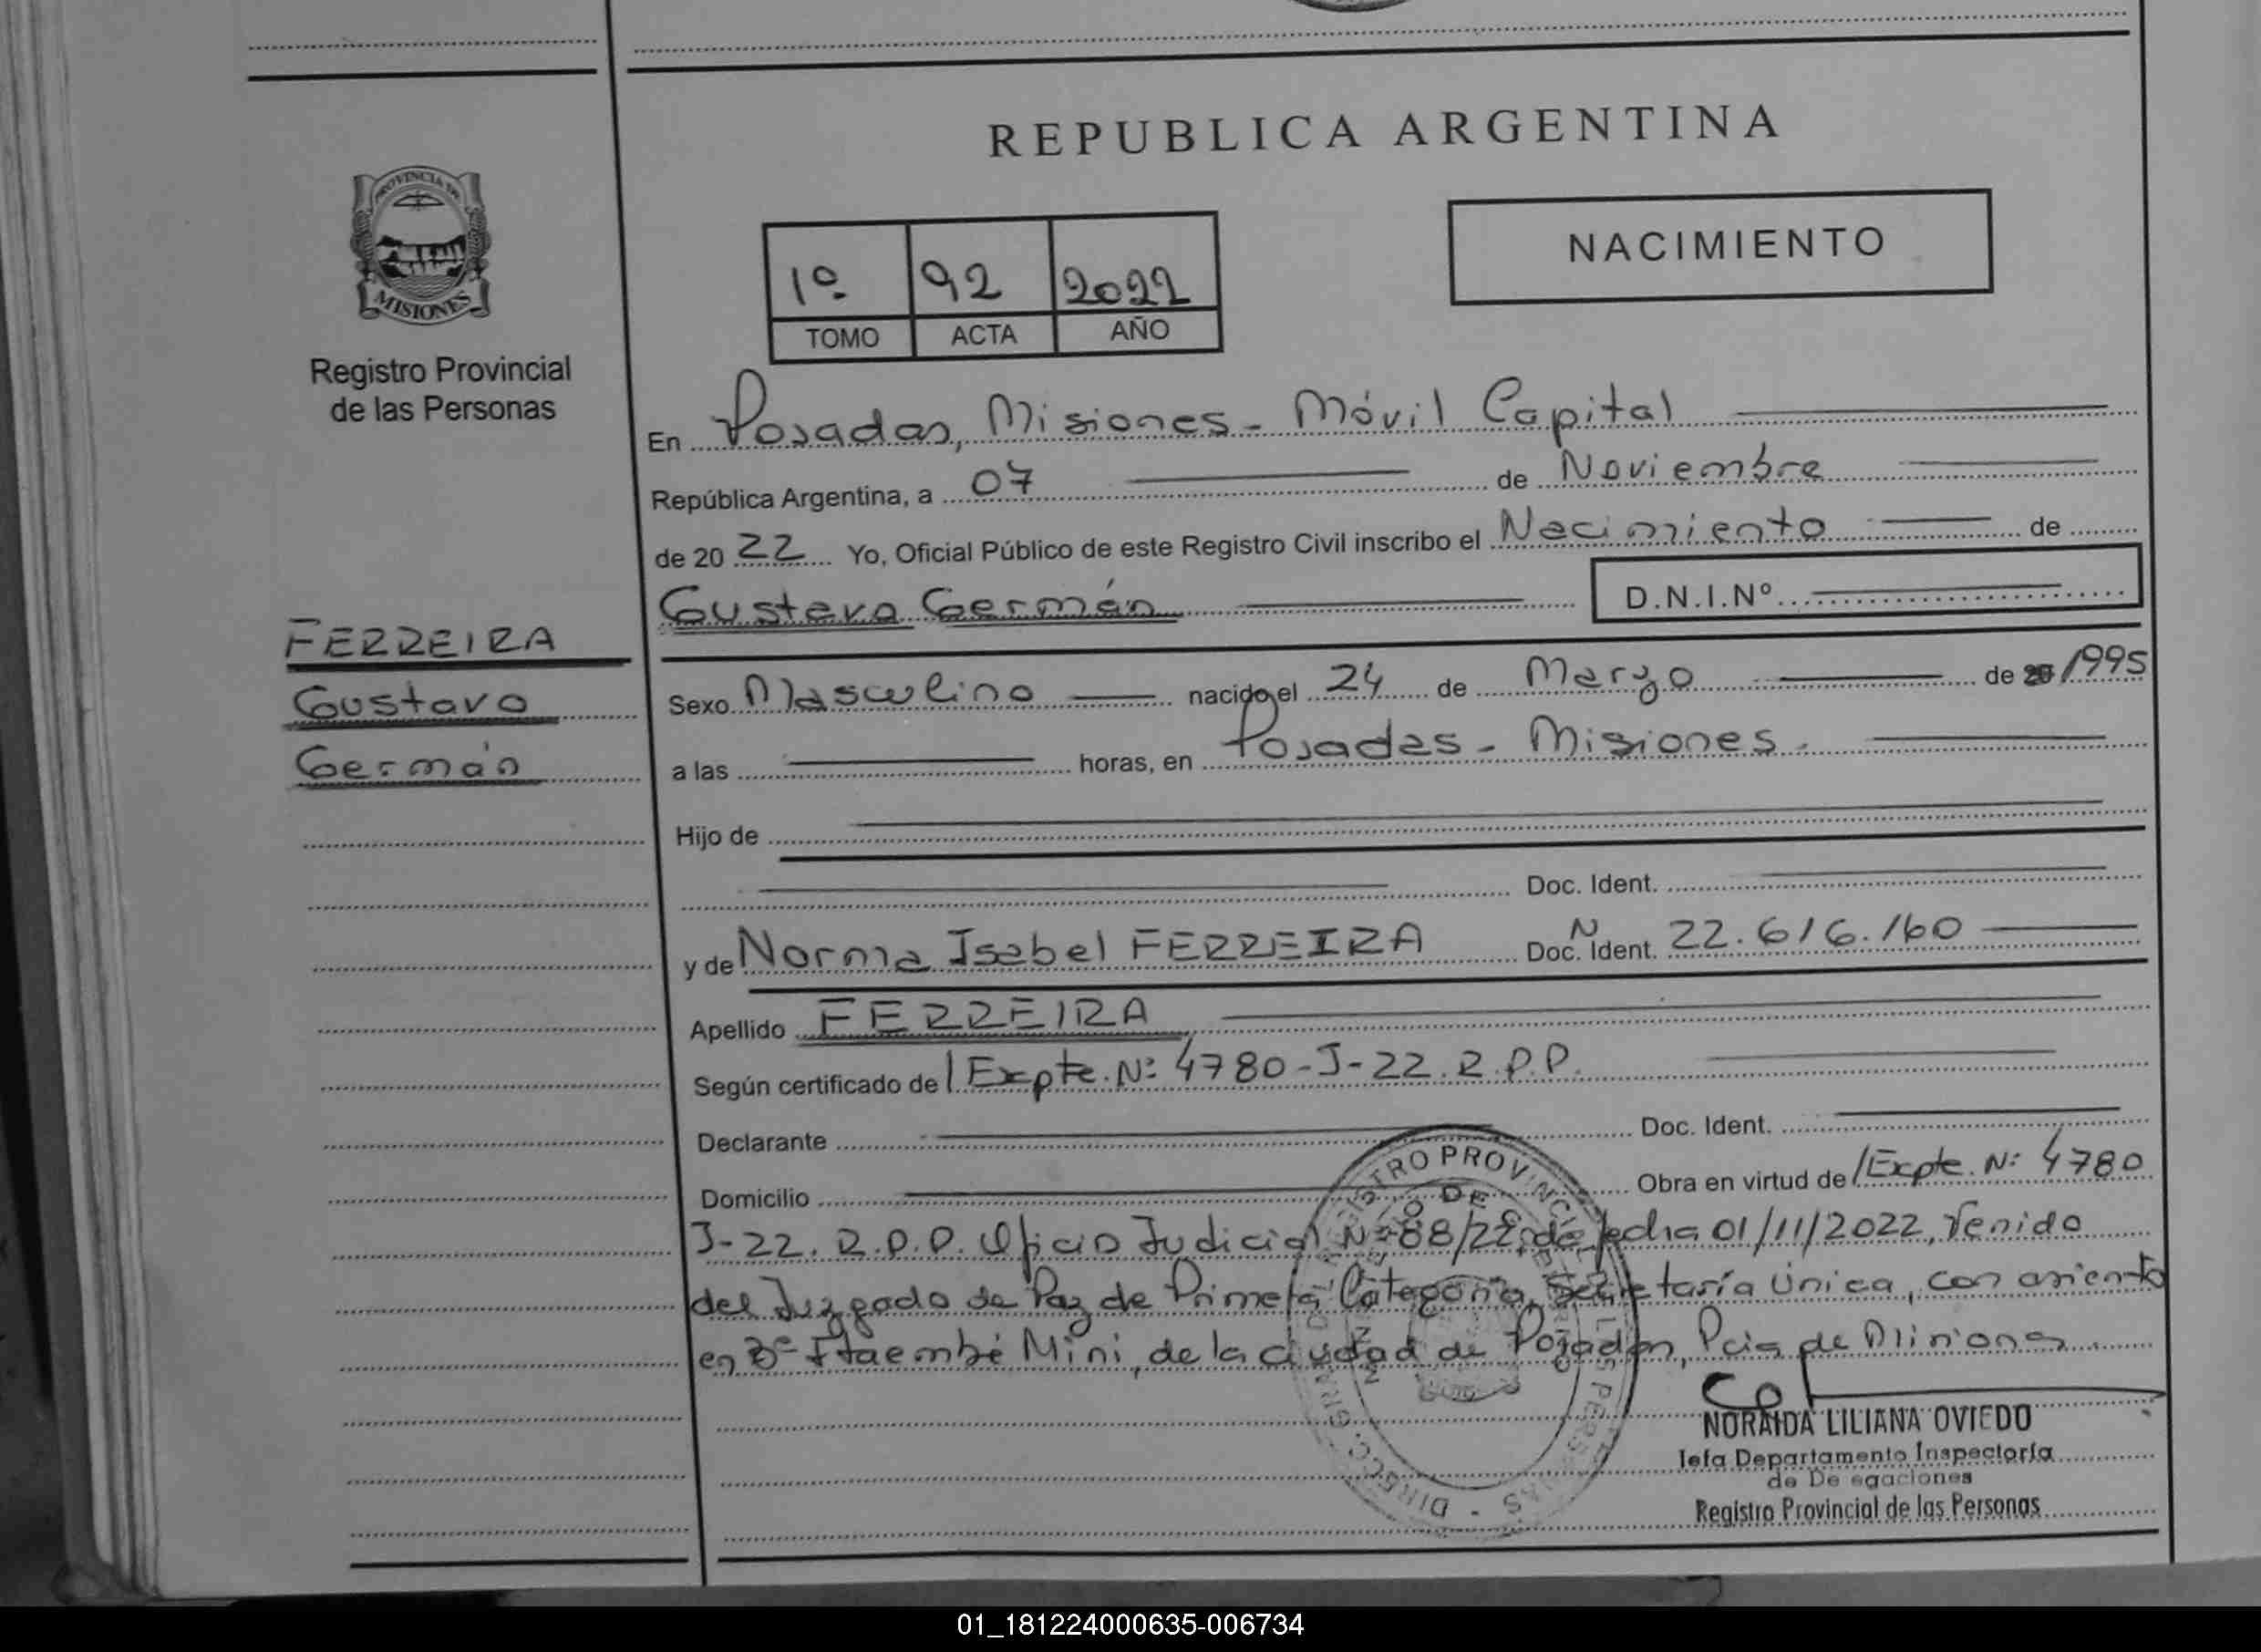 REPUBLICA ARGENTINA
PROVINCIA DE
MISIONES
Registro Provincial
de las Personas
NACIMIENTO
1º 92 2022
TOMO ACTA AÑO
En Posadas, Misiones - Móvil Capital
República Argentina, a 07 de Noviembre
de 20 22 Yo, Oficial Público de este Registro Civil inscribo el Nacimiento de
Gustavo Germán D.N.I.Nº
FERREIRA
Gustavo
Germán
Sexo Masculino nacido el 24 de Marzo de 1995
a las horas, en Posadas - Misiones.
Hijo de
Doc. Ident.
y de Norma Isabel FERREIRA Doc. Ident. N 22.616.160
Apellido FERREIRA
Según certificado de / Expte. Nº 4780-J-22. R.P.P.
Declarante Doc. Ident.
Domicilio Obra en virtud de / Expte. Nº 4780
J-22. R.P.P. Oficio Judicial Nº 88/22, de fecha 01/11/2022, Venido
del Juzgado de Paz de Primera Categoría, Secretaría Única, con asiento
en Bº Itaembé Mini, de la ciudad de Posadas, Pcia de Misiones
NORAIDA LILIANA OVIEDO
Jefa Departamento Inspectoría
de De egaciones
Registro Provincial de las Personas
01_181224000635-006734